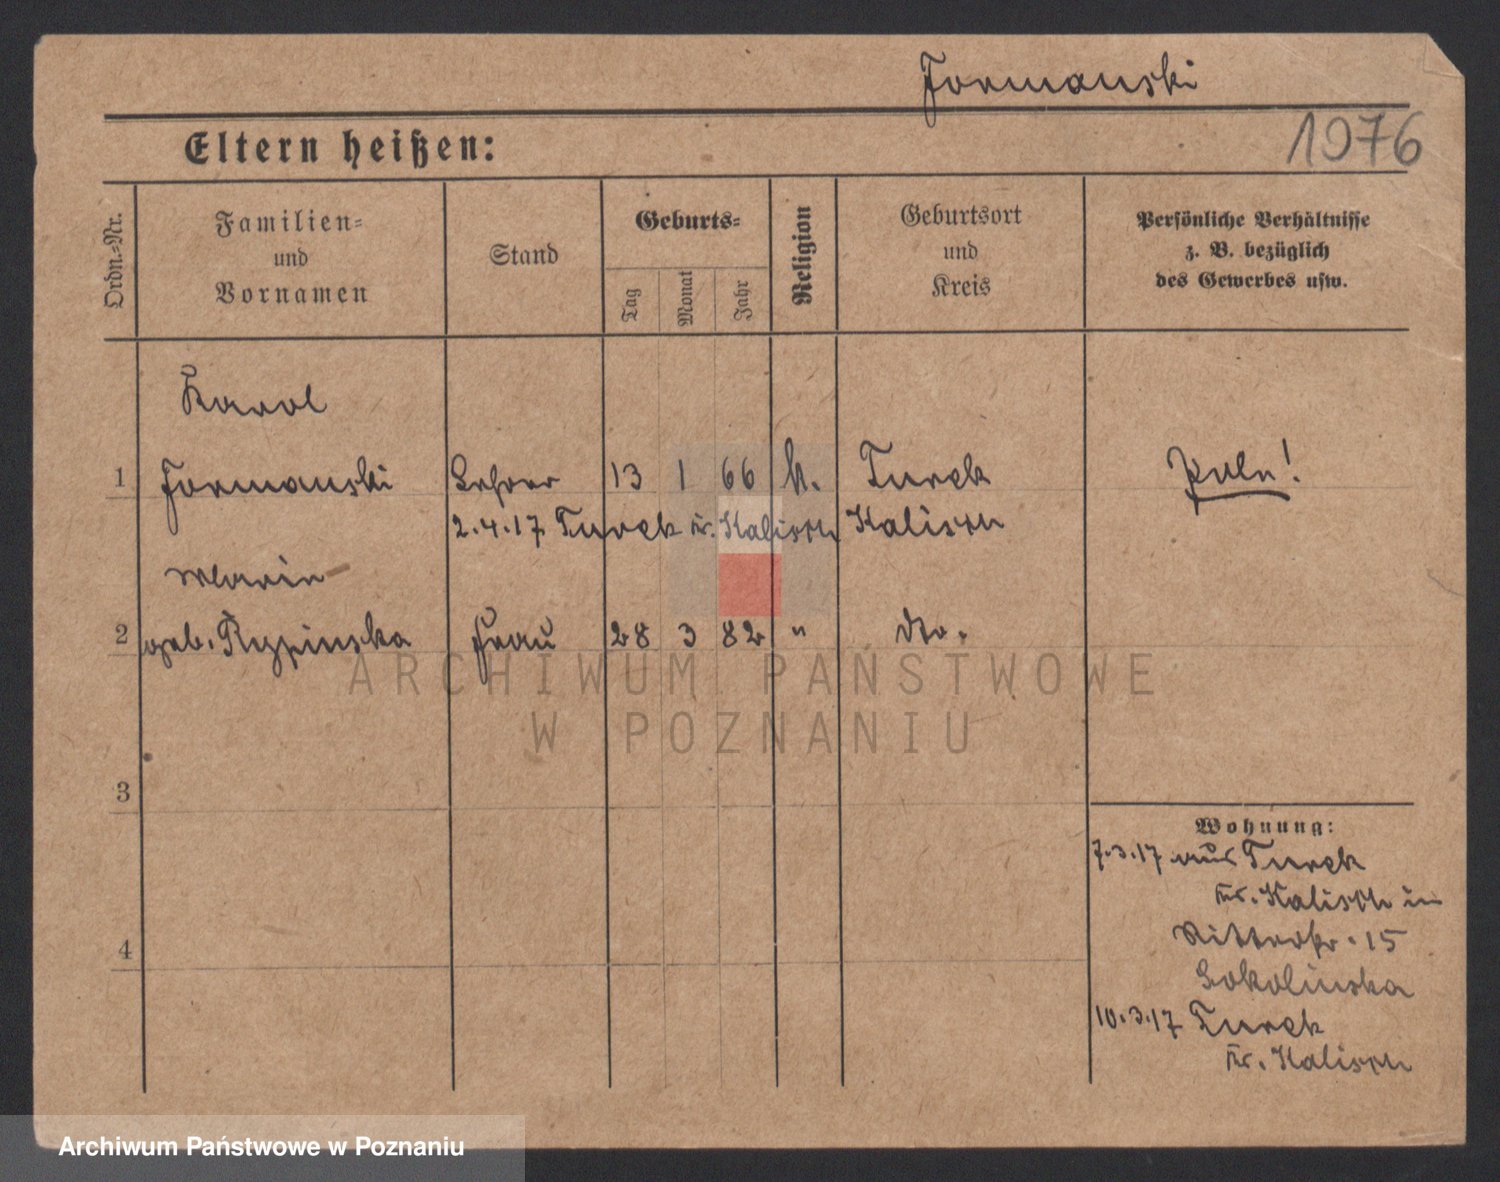 Formanski
1976
Eltern heißen:
Ordn.=Nr.
Familien=
und
Vornamen
Stand
Geburts=
Tag
Monat
Jahr
Religion
Geburtsort
und
Kreis
Persönliche Verhältnisse
z. B. bezüglich
des Gewerbes usw.
Karol
1 Formanski Lehrer 13 1 66 k. Turek Pole!
2.4.17 Turek Kr. Kalisch Kalisch
Maria
2 geb. Rypinska Frau 28 3 82 " dto.
ARCHIWUM PAŃSTWOWE
W POZNANIU
3
Wohnung:
7.3.17 aus Turek
Kr. Kalisch in
Ritterstr. 15
4
Sokolinska
10.3.17 Turek
Kr. Kalisch
Archiwum Państwowe w Poznaniu